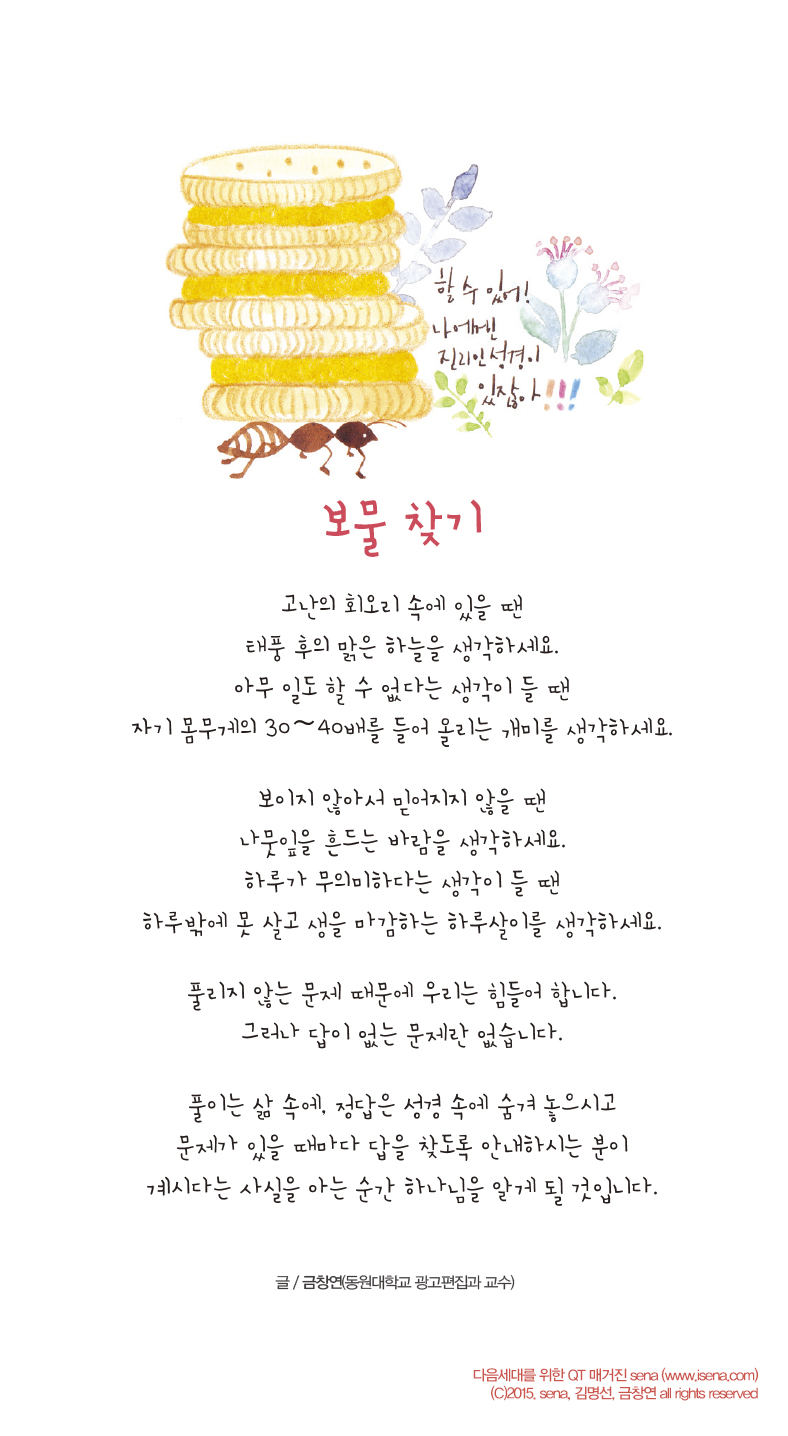 할 수 있어!
나에겐
진리인 성경이
있잖아!!!
보물 찾기
고난의 회오리 속에 있을 땐
태풍 후의 맑은 하늘을 생각하세요.
아무 일도 할 수 없다는 생각이 들 땐
자기 몸무게의 30~40배를 들어 올리는 개미를 생각하세요.
보이지 않아서 믿어지지 않을 땐
나뭇잎을 흔드는 바람을 생각하세요.
하루가 무의미하다는 생각이 들 땐
하루밖에 못 살고 생을 마감하는 하루살이를 생각하세요.
풀리지 않는 문제 때문에 우리는 힘들어 합니다.
그러나 답이 없는 문제란 없습니다.
풀이는 삶 속에, 정답은 성경 속에 숨겨 놓으시고
문제가 있을 때마다 답을 찾도록 안내하시는 분이
계시다는 사실을 아는 순간 하나님을 알게 될 것입니다.
글 / 금창연(동원대학교 광고편집과 교수)
다음세대를 위한 QT 매거진 sena (www.isena.com)
(C)2015. sena, 김명선, 금창연 all rights reserved